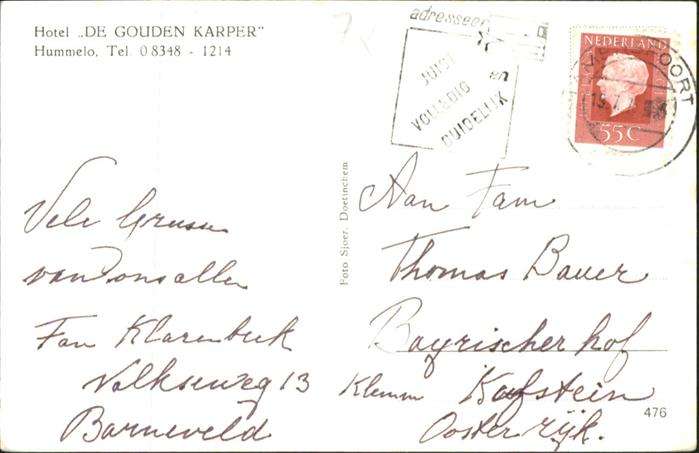 Hotel „DE GOUDEN KARPER"
Hummelo, Tel. 08348 - 1214
adresseer
JUIST
VOLLEDIG
en
DUIDELIJK
NEDERLAND
55C
OORT
Vele Grussen
van ons allen
Fam Klarenbeek
Valkseweg 13
Barneveld
Foto Sjoer, Doetinchem
Aan Fam
Thomas Bauer
Bayrischer hof
Klemm Kufstein
Oosterrijk.
476